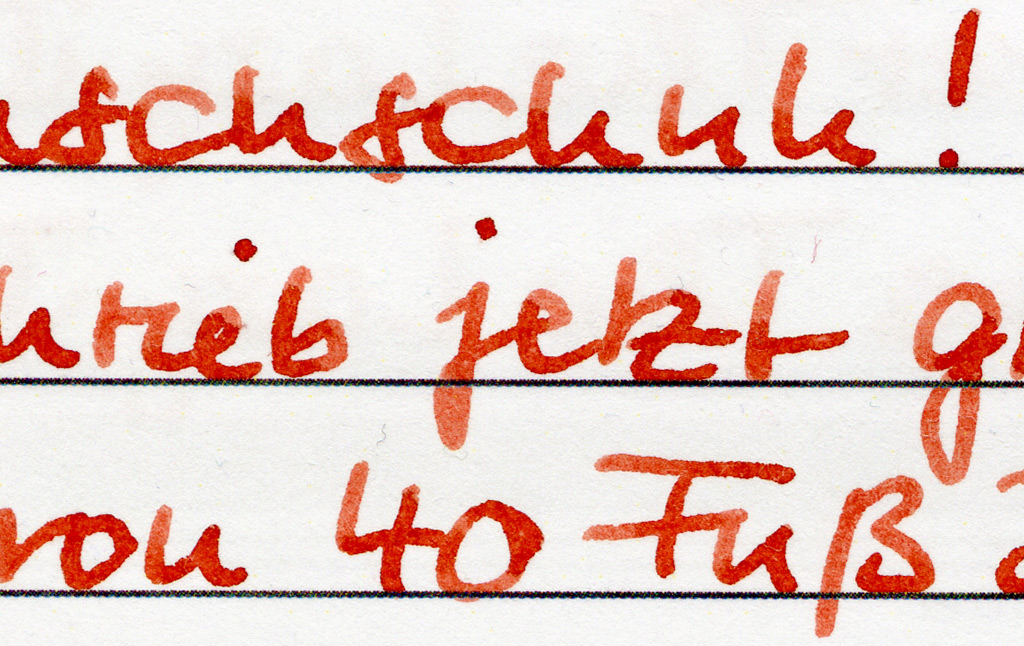 schschuh!
hrieb jetzt g
von 40 Fuß